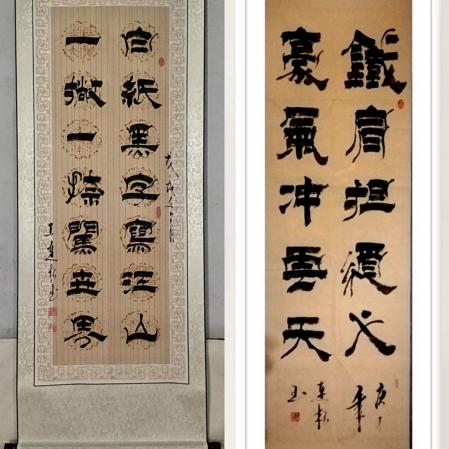 白紙黑字寫江山
一撇一捺闖世界
鐵肩担道义
豪氣冲雲天